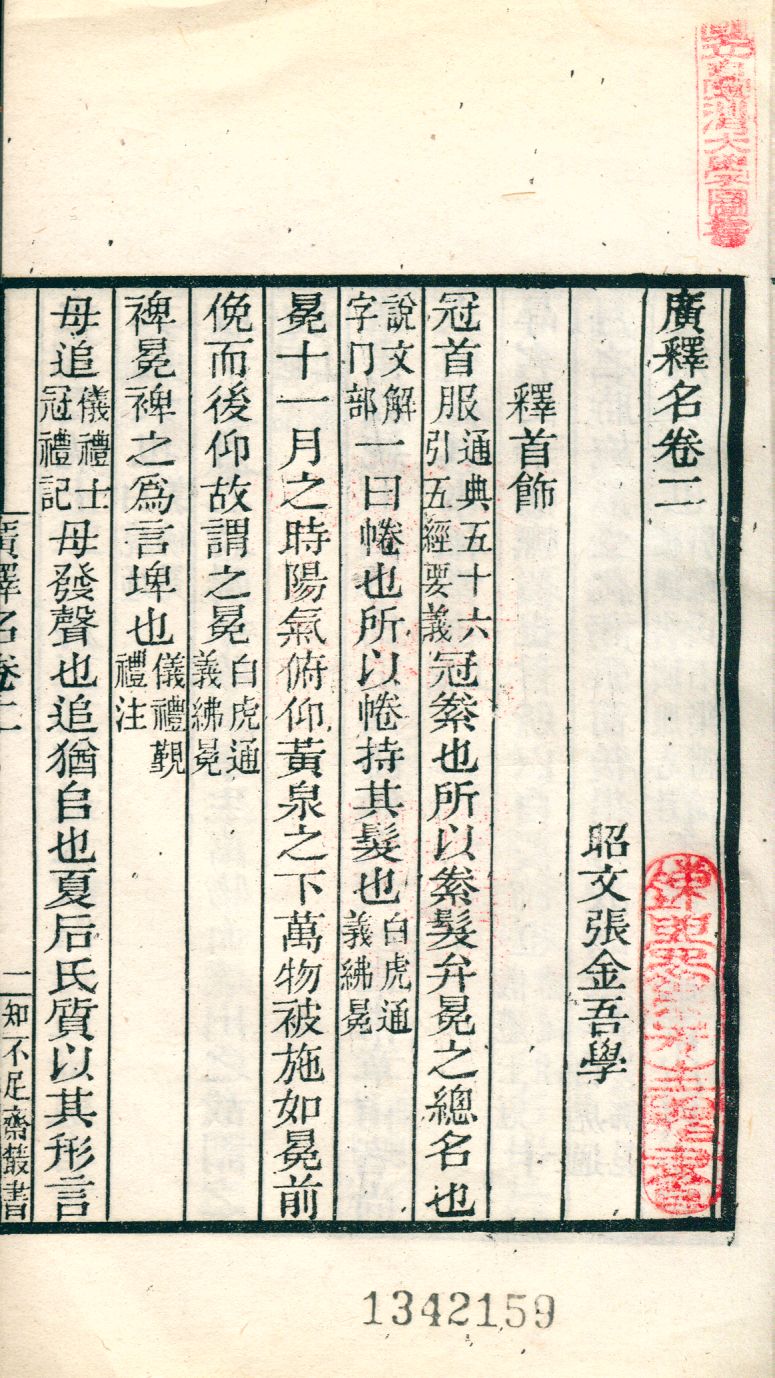 廣釋名卷二
昭文張金吾學
釋首飾
冠首服通典五十六引五經要義冠絭也所以絭髮弁冕之總名也
說文解字冂部一曰帣也所以帣持其髮也白虎通義紼冕
冕十一月之時陽氣俯仰黃泉之下萬物被施如冕前
俛而後仰故謂之冕白虎通義紼冕
裨冕裨之爲言埤也儀禮覲禮注
母追儀禮士冠禮記母發聲也追猶𠂤也夏后氏質以其形言
廣釋名卷二
一
知不足齋叢書
1342159